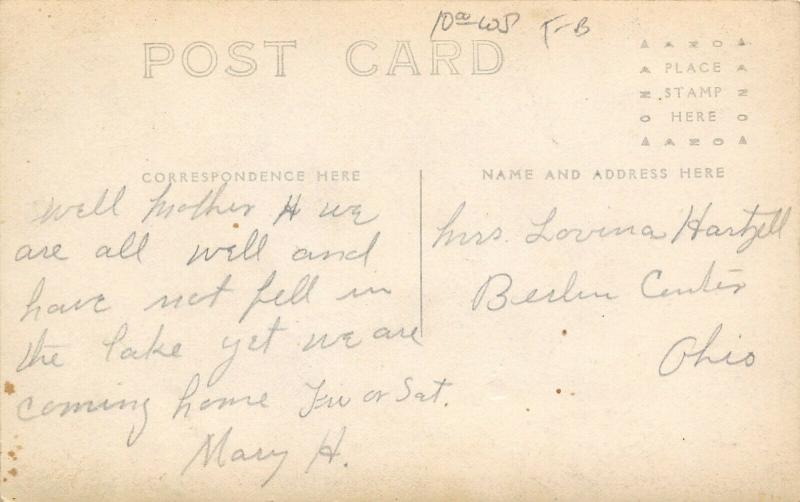 1000 WS T-B
POST CARD
AZO
PLACE
STAMP
HERE
AZO
CORRESPONDENCE HERE
NAME AND ADDRESS HERE
well mother H we
are all well and
have not fell in
the lake yet we are
coming home Fri or Sat.
Mary H.
Mrs. Lovina Hartzell
Berlin Center
Ohio